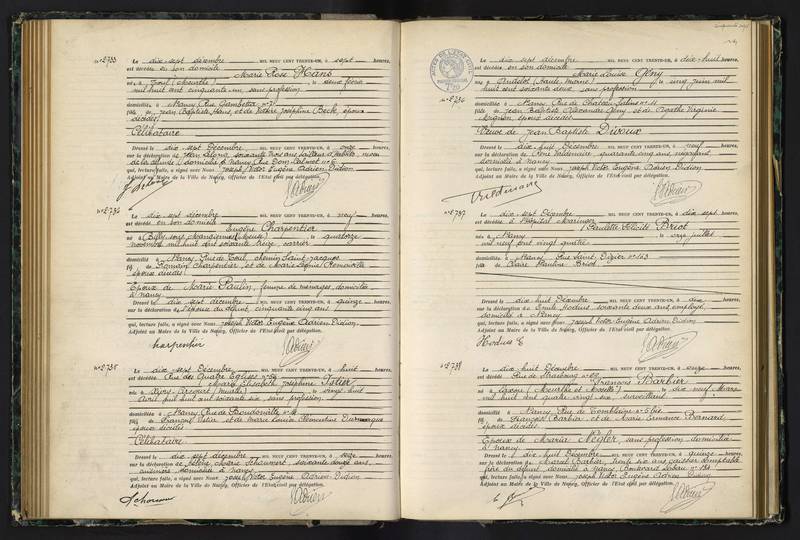 n° 2733
Le dix-sept décembre MIL NEUF CENT TRENTE-UN, à sept heures,
est décédée en son domicile
Marie Rose Hans
née à Toul (Meurthe) le seize février
mil huit cent cinquante un sans profession
domiciliée à Nancy Rue Gambetta n° 7
fille de Jean Baptiste Hans, et de Victoire Joséphine Beck, époux
décédés
Célibataire
Dressé le dix-sept Décembre MIL NEUF CENT TRENTE-UN, à onze heures,
sur la déclaration de Jean soixante trois ans tailleur d'habits
de la défunte domicilié à Nancy Rue Dom Calmet n° 6
qui, lecture faite, a signé avec Nous Joseph Victor Eugène Adrien Didion
Adjoint au Maire de la Ville de Nancy, Officier de l'Etat civil par délégation.
n° 2734
Le dix-sept décembre MIL NEUF CENT TRENTE-UN, à neuf heures,
est décédé en son domicile
Eugène Charpentier
né à (Billy sous Mangiennes (Meuse) le quatorze
novembre mil huit cent soixante treize, carrier
domicilié à Nancy, Rue de Toul, chemin Saint Jacques
fils de Romain Charpentier, et de Marie Sophie
époux décédés
Epoux de Marie Paulin, femme de ménages, domiciliée
à Nancy
Dressé le dix sept décembre MIL NEUF CENT TRENTE-UN, à quinze heures,
sur la déclaration de l'épouse du défunt, cinquante cinq ans
qui, lecture faite, a signé avec Nous Joseph Victor Eugène Adrien Didion
Adjoint au Maire de la Ville de Nancy, Officier de l'Etat civil par délégation.
n° 2735
Le dix-sept Décembre MIL NEUF CENT TRENTE-UN, à huit heures,
est décédée Rue des Quatre Eglises n° 69
Marie Elisabeth Joséphine Istier
née à (Meurthe) le vingt huit
Avril mil huit cent soixante six, sans profession
domiciliée à Nancy Rue de n° 14
fille de François Istier et de Marie Louise Clémentine
époux décédés
Célibataire
Dressé le dix sept décembre MIL NEUF CENT TRENTE-UN, à seize heures,
sur la déclaration de Marie soixante douze ans,
domiciliée à Nancy
qui, lecture faite, a signé avec Nous Joseph Victor Eugène Adrien Didion
Adjoint au Maire de la Ville de Nancy, Officier de l'Etat civil par délégation.
n° 2736
Le dix sept décembre MIL NEUF CENT TRENTE-UN, à dix-huit heures,
est décédée en son domicile
Marie Louise Gény
née à Andelot (Haute Marne) le cinq juin mil
huit cent soixante deux, sans profession
domiciliée à Nancy Rue de Château Salins n° 11
fille de Jean Baptiste Gény et de Agathe Virginie
Mignon, époux décédés
Veuve de Jean Baptiste Divoux
Dressé le dix-huit Décembre MIL NEUF CENT TRENTE-UN, à neuf heures,
sur la déclaration de René Viddemain, quarante cinq ans,
domicilié à Nancy
qui, lecture faite, a signé avec Nous Joseph Victor Eugène Adrien Didion
Adjoint au Maire de la Ville de Nancy, Officier de l'Etat civil par délégation.
n° 2737
Le dix-sept Décembre MIL NEUF CENT TRENTE-UN, à dix sept heures,
est décédée à l'Hôpital Maringer
Paulette Félicité Briot
née à Nancy le onze juillet
mil neuf cent vingt quatre
domiciliée à Nancy, Rue Saint Dizier n° 163
fille de Claire Pauline Briot
Dressé le dix-huit Décembre MIL NEUF CENT TRENTE-UN, à dix heures,
sur la déclaration de Emile Hodus, soixante deux ans, employé,
domicilié à Nancy
qui, lecture faite, a signé avec Nous Joseph Victor Eugène Adrien Didion
Adjoint au Maire de la Ville de Nancy, Officier de l'Etat civil par délégation.
n° 2738
Le dix-huit Décembre MIL NEUF CENT TRENTE-UN, à onze heures,
est décédé Rue de Strasbourg n°
François Barbier
né à (Meurthe et Moselle) le dix neuf Mars
mil huit cent quatre vingt six, surveillant
domicilié à Nancy, Rue de Tomblaine n° 5 bis
fils de François Barbier et de Marie Ermance Bernard
époux décédés
Epoux de Maria Négler, sans profession, domiciliée
à Nancy
Dressé le dix-huit Décembre MIL NEUF CENT TRENTE-UN, à quinze heures,
sur la déclaration de Marcel Barbier, trente six ans, caissier comptable,
frère du défunt, domicilié à Nancy, Boulevard Lobau n° 131
qui, lecture faite, a signé avec Nous Joseph Victor Eugène Adrien Didion
Adjoint au Maire de la Ville de Nancy, Officier de l'Etat civil par délégation.